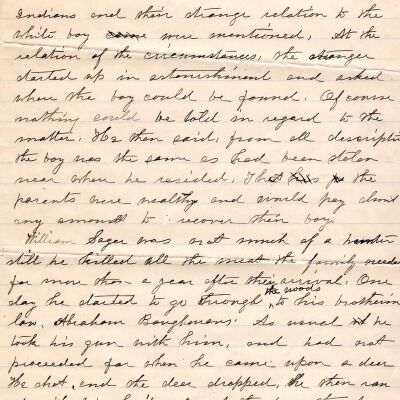 Indians and their strange relation to the
white boy came were mentioned, At the
relation of the circumstances, the stranger
started up in astonishment and asked
where the boy could be found. Of course
nothing could be told in regard to the
matter. He then said, from all descripti
the boy was the same as had been stolen
near where he resided. That his the
parents were wealthy and would pay almost
any amount to recover their boy.
William Sager was not much of a hunter
still he killed all the meat the family needed
for more than a year after their arrival. One
day he started to go through the woods, to his brother in
law, Abraham Boughmans. As usual he
took his gun with him, and had not
proceeded far when he came upon a deer
He shot, and the deer dropped, he then ran